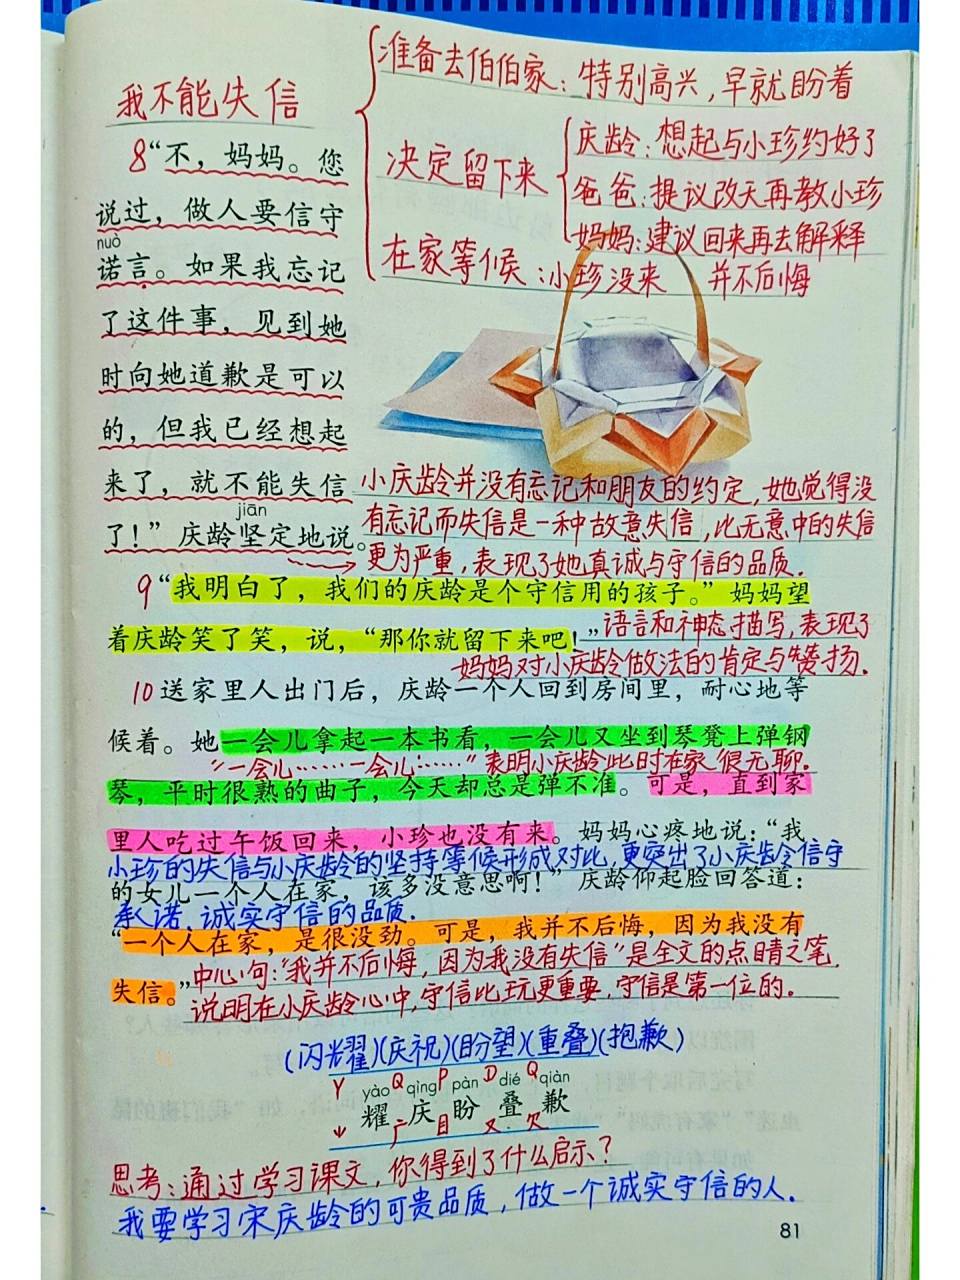 我不能失信
准备去伯伯家：特别高兴，早就盼着
决定留下来
庆龄：想起与小珍约好了
爸爸：提议改天再教小珍
妈妈：建议回来再去解释
在家等候：小珍没来 并不后悔
8“不，妈妈。您
说过，做人要信守
nuò
诺言。如果我忘记
了这件事，见到她
时向她道歉是可以
的，但我已经想起
来了，就不能失信
jiān
了！”庆龄坚定地说。
小庆龄并没有忘记和朋友的约定，她觉得没
有忘记而失信是一种故意失信，比无意中的失信
更为严重，表现了她真诚与守信的品质．
9“我明白了，我们的庆龄是个守信用的孩子。”妈妈望
着庆龄笑了笑，说，“那你就留下来吧！”
语言和神态描写，表现了
妈妈对小庆龄做法的肯定与赞扬．
10送家里人出门后，庆龄一个人回到房间里，耐心地等
候着。她一会儿拿起一本书看，一会儿又坐到琴凳上弹钢
“一会儿……一会儿……”表明小庆龄此时在家很无聊．
琴，平时很熟的曲子，今天却总是弹不准。可是，直到家
里人吃过午饭回来，小珍也没有来。妈妈心疼地说：“我
小珍的失信与小庆龄的坚持等候形成对比，更突出了小庆龄信守
的女儿一个人在家，该多没意思啊！”庆龄仰起脸回答道：
承诺，诚实守信的品质．
“一个人在家，是很没劲。可是，我并不后悔，因为我没有
中心句：“我并不后悔，因为我没有失信”是全文的点睛之笔，
失信。”
说明在小庆龄心中，守信比玩更重要，守信是第一位的．
（闪耀）（庆祝）（盼望）（重叠）（抱歉）
Y yào Q qìng P pàn D dié Q qiàn
耀 庆 盼 叠 歉
广 目 又 欠
思考：通过学习课文，你得到了什么启示？
我要学习宋庆龄的可贵品质，做一个诚实守信的人．
81